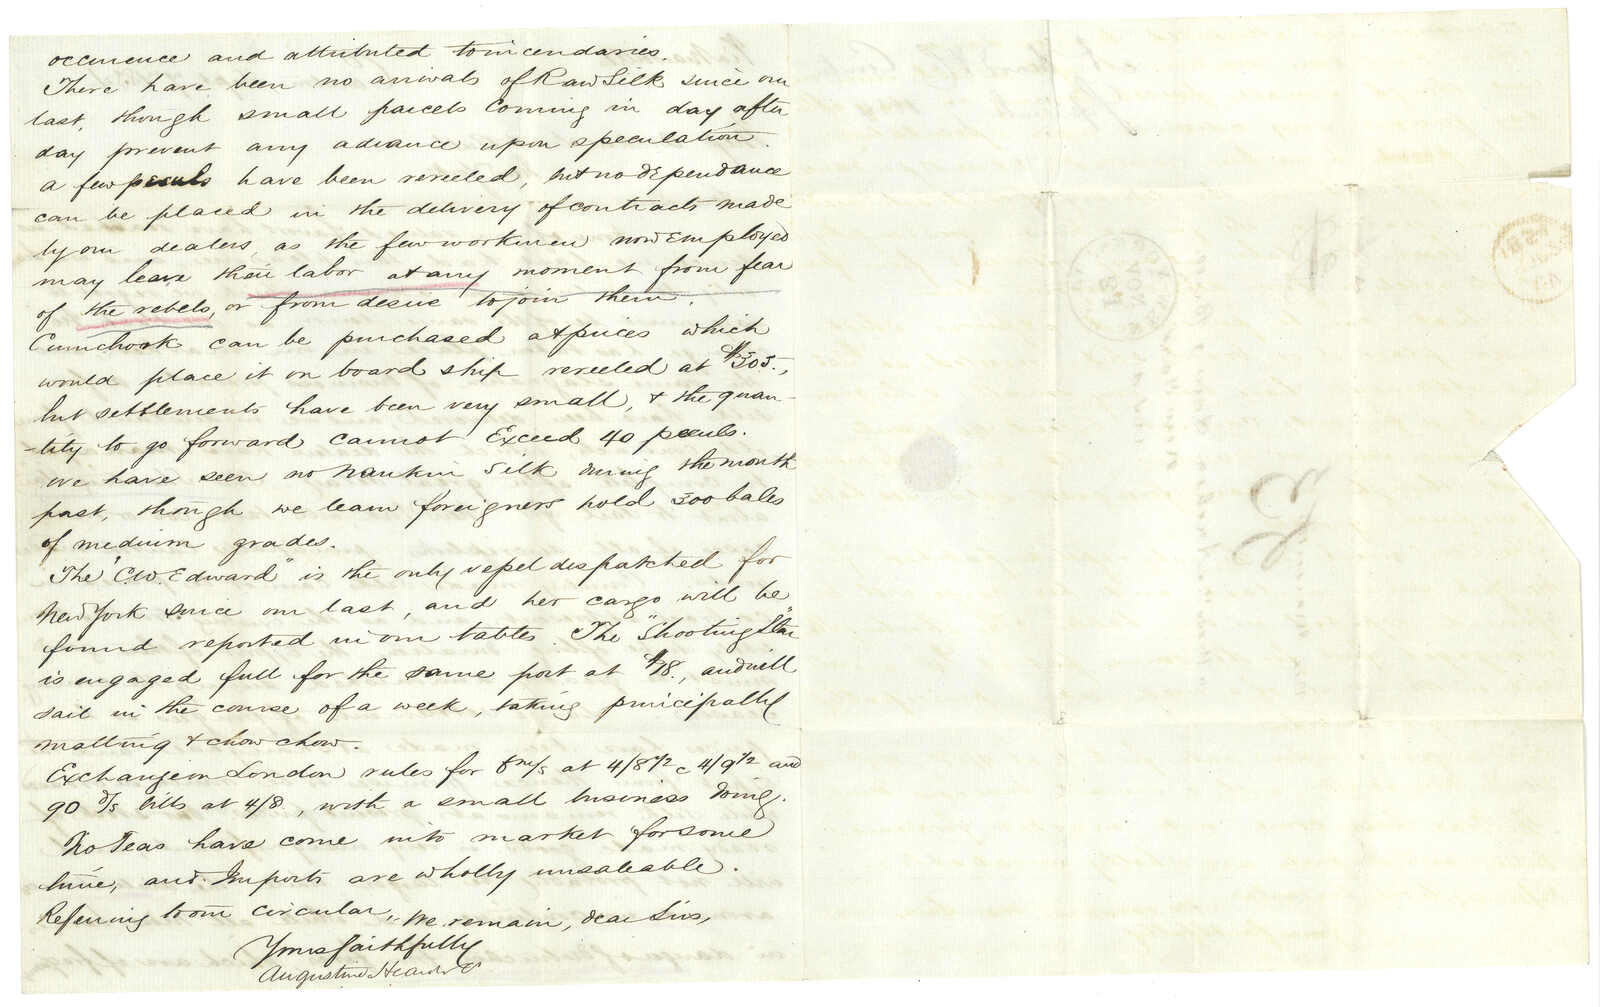 occurence and attributed to incendaries.
There have been no arrivals of Raw Silk since our
last, though small parcels coming in day after
day prevent any advance upon speculation.
a few peculs have been rereeled, but no dependance
can be placed in the delivery of contracts made
by our dealers, as the few workmen now employed
may leave their labor at any moment from fear
of the rebels, or from desire to join them.
Cumchook can be purchased at prices which
would place it on board ship rereeled at $305.,
but settlements have been very small, & the quan-
-tity to go forward cannot exceed 40 peculs.
we have seen no Nankin Silk during the month
past, though we learn foreigners hold 300 bales
of medium grades.
The "C.W. Edward" is the only vessel dispatched for
New York since our last, and her cargo will be
found reported in our tables. The "Shooting Star"
is engaged full for the same port at $18., and will
sail in the course of a week, taking principally
matting & chow chow.
Exchange on London rules for 6 m/s at 4/8 1/2 c 4/9 1/2 and
90 d/s bills at 4/8., with a small business doing.
No Teas have come into market for some
time, and Imports are wholly unsaleable.
Referring to our circular, We remain, dear Sirs,
Yours faithfully
Augustine Heard & Co